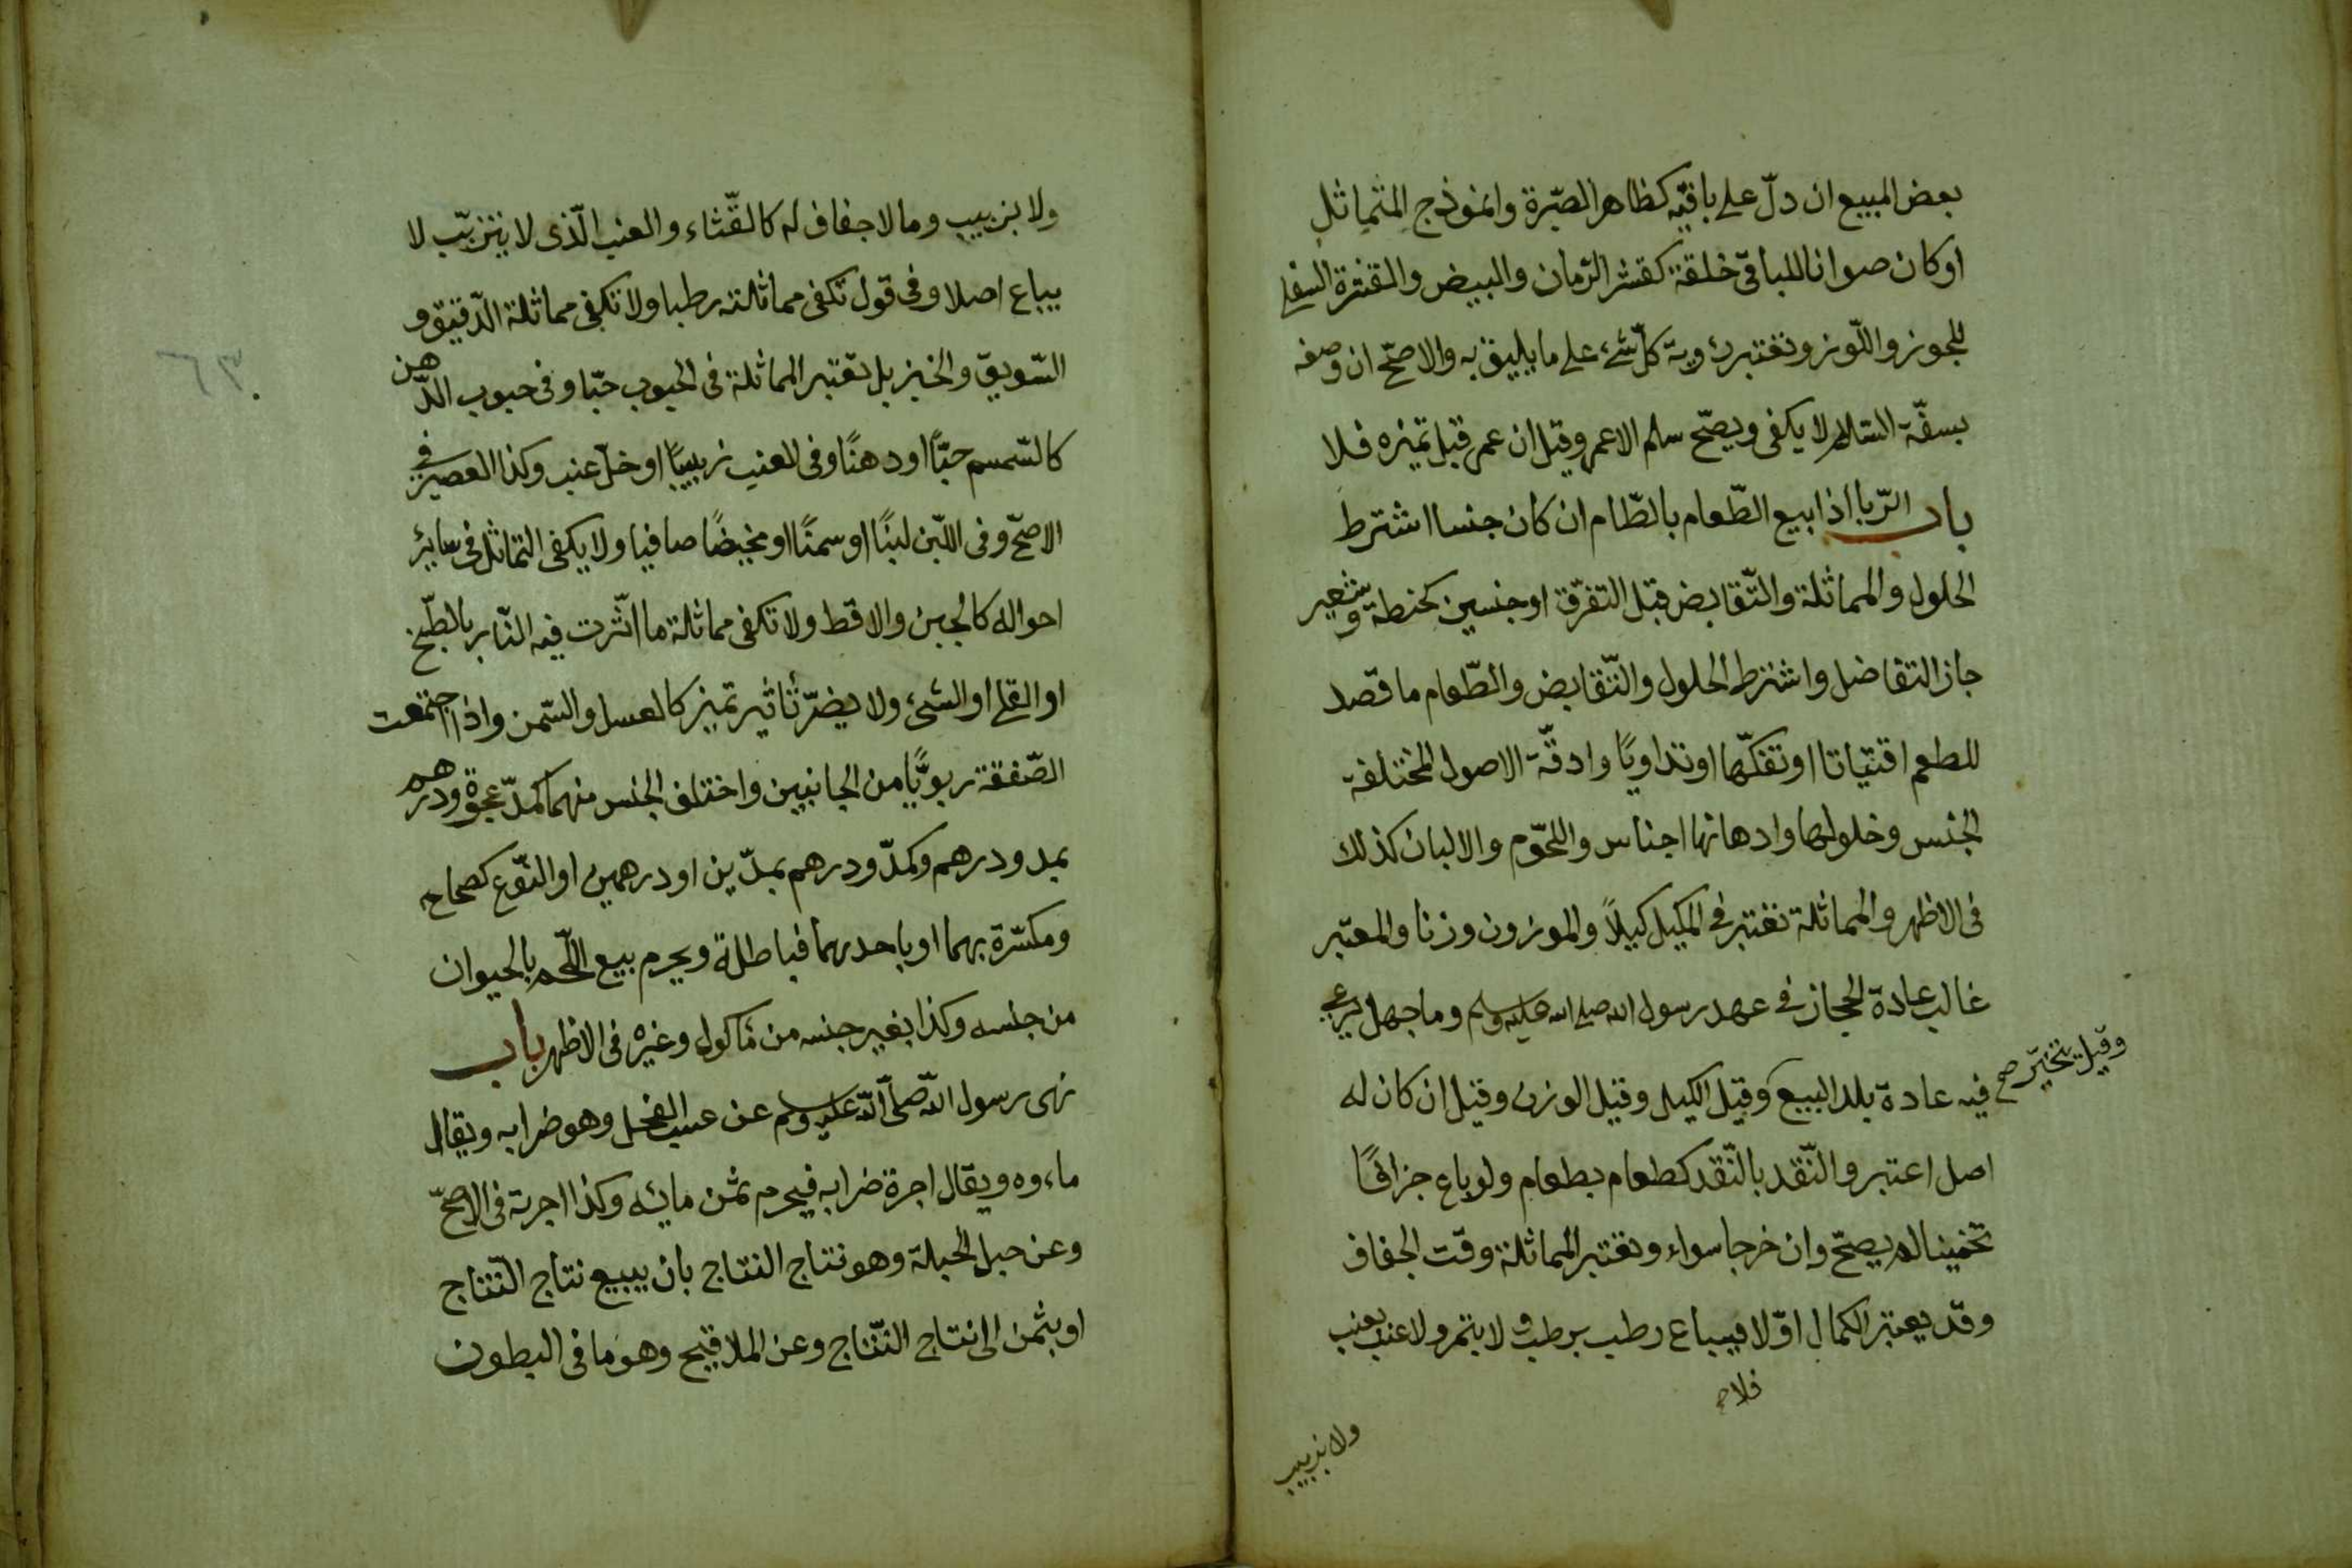 بعض المبيع ان دلّ على باقيه كظاهر الصّبرة وانموذج المتماثل
او كان صوانا للباقى خلقة كقشر الرّمان والبيض والقشرة السفلى
للجوز واللّوز وتعتبر رؤية كلّ شئ على ما يليق به والاصحّ ان وصفه
بسفّة السّلم لا يكفى ويصحّ سلم الاعمى وقيل ان عمى قبل تميزه فلا
باب الرّبا اذا بيع الطّعام بالطّام ان كان جنسا اشترط
الحلول والمماثلة والتّقابض قبل التفرّق او جنسين كحنطة وشعير
جاز التفاضل واشترط الحلول والتّقابض والطّعام ما قصد
للطعم اقتياتا او تفكّها او تداويًا وادقّة الاصول المختلفة
الجنس وخلولها وادهانها اجناس واللحوم والالبان كذلك
فى الاظهر والمماثلة تعتبر فى المكيل كيلاً والموزون وزنا والمعتبر
غالب عادة الحجاز فى عهد رسول الله صلى الله عليه وسلم وما جهل يرعى
فيه عادة بلد البيع وقيل الكيل وقيل الوزن وقيل ان كان له
وقيل يتخيّر صح
اصل اعتبر والنّقد بالنّقد كطعام بطعام ولو باع جزافًا
تخمينا لم يصحّ وان خرجا سواء وتعتبر المماثلة وقت الجفاف
وقد يعتبر الكمال اوّلا فيباع رطب برطب و لا بتمر ولا عنب بعنب
فلا
ولا بزبيب
ولا بزبيب وما لا جفاف له كالقّثاء والعنب الّذى لا يتزبّب لا
يباع اصلا وفى قول تكفى مماثلته رطبا ولا تكفى مماثلة الدّقيق و
السّويق والخبز بل تعتبر المماثلة فى الحبوب حبّا وفى حبوب الدّهن
كالسّمسم حبّاً او دهنًا وفى العنب زبيبًا او خلّ عنب وكذا العصير فى
الاصحّ وفى اللّبن لبنًا او سمنًا او مخيضًا صافيا ولا يكفى التماثل فى سائر
احواله كالجبن والاقط ولا تكفى مماثلة ما اثّرت فيه النّار بالطّبخ
او القلى او الشىء ولا يضرّ تأثير تميز كالعسل والسّمن واذا اجتمعت
الصّفقة ربويًّا من الجانبين واختلف الجنس منهما كمدّ عجوة ودرهم
بمد ودرهم وكمدّ ودرهم بمدّين او درهمين او النّوع كصحاح
ومكسّرة بهما او باحدهما فباطلة ويحرم بيع اللّحم بالحيوان
من جنسه وكذا بغير جنسه من مأكول وغيره فى الاظهر باب
نهى رسول الله صلّى الله عليه وسلم عن عسب الفحل وهو ضرابه ويقال
ماءوه ويقال اجرة ضرابه فيحرم ثمن مائه وكذا اجرته فى الاصحّ
وعن حبل الحبلة وهو نتاج النتاج بان يبيع نتاج النّتاج
او بثمن الى نتاج النّتاج وعن الملاقيح وهو ما فى البطون